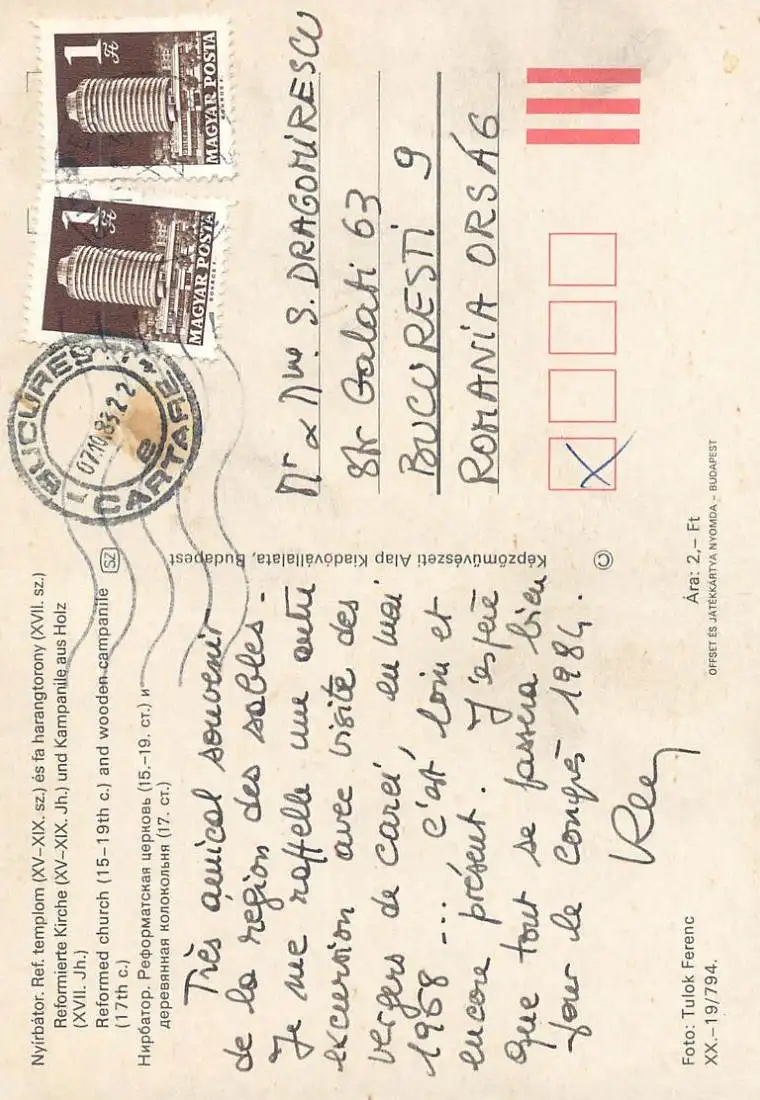 Nyírbátor. Ref. templom (XV–XIX. sz.) és fa harangtorony (XVII. sz.)
Reformierte Kirche (XV–XIX. Jh.) und Kampanile aus Holz
(XVII. Jh.)
Reformed church (15–19th c.) and wooden campanile
(17th c.)
Нирбатор. Реформатская церковь (15.–19. ст.) и
деревянная колокольня (17. ст.)
SZ
Très amical souvenir
de la région des sables.
Je me rappelle une autre
excursion avec visite des
vergers de Carei, en mai
1968 ... c'est loin et
encore présent. J'espère
que tout se passera bien
pour le Congrès 1984.
Foto: Tulok Ferenc
XX.–19/794.
Képzőművészeti Alap Kiadóvállalata, Budapest
©
Ára: 2,– Ft
OFFSET ÉS JÁTÉKKÁRTYA NYOMDA – BUDAPEST
1 Ft
MAGYAR POSTA
1 Ft
MAGYAR POSTA
BUCURESTI
07.10.83.22
CARTARE
Mr & Mme S. DRAGOMIRESCU
Str Galati 63
BUCURESTI 9
ROMANIA ORSÁG
X